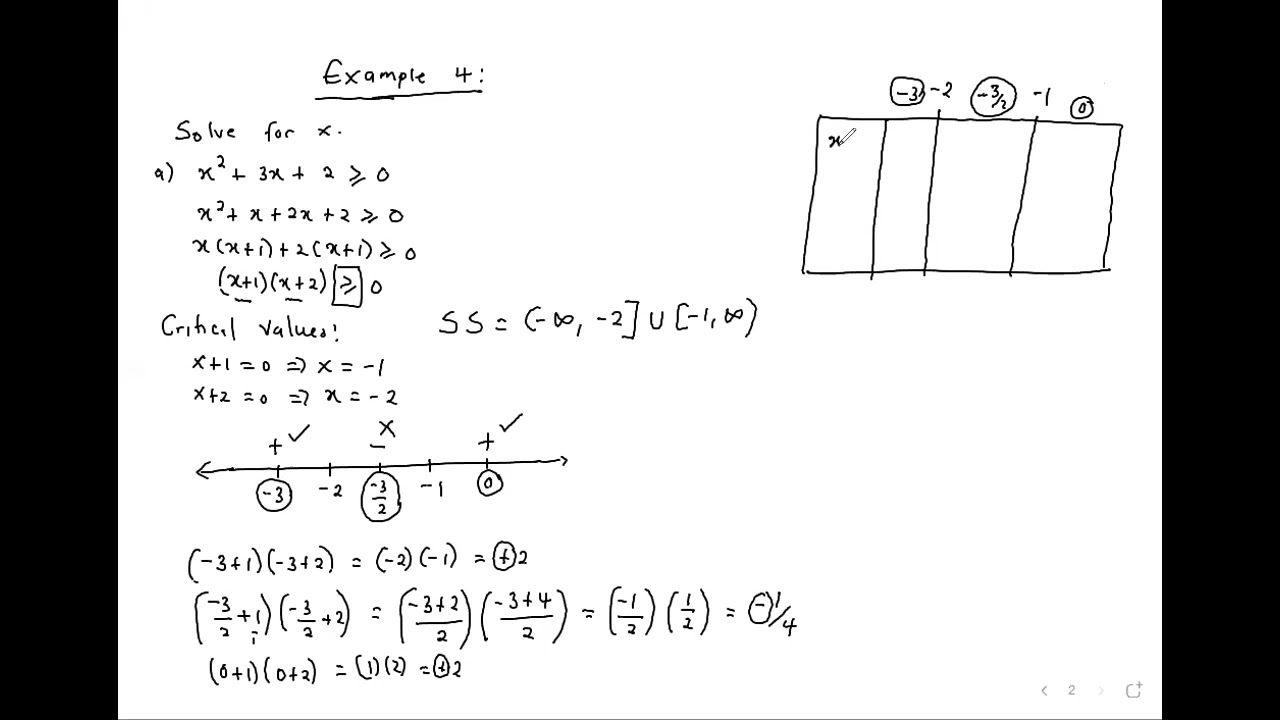 Example 4:
Solve for x.
a) x² + 3x + 2 ⩾ 0
x² + x + 2x + 2 ⩾ 0
x(x+1) + 2(x+1) ⩾ 0
(x+1)(x+2) ⩾ 0
Critical values:
x+1 = 0 ⇒ x = -1
x+2 = 0 ⇒ x = -2
+ ✓ - X + ✓
-3 -2 -3/2 -1 0
(-3+1)(-3+2) = (-2)(-1) = +2
(-3/2 + 1/1)(-3/2 + 2) = ((-3+2)/2)((-3+4)/2) = (-1/2)(1/2) = -1/4
(0+1)(0+2) = (1)(2) = +2
SS = (-∞, -2] ∪ [-1, ∞)
-3 -2 -3/2 -1 0
x
2